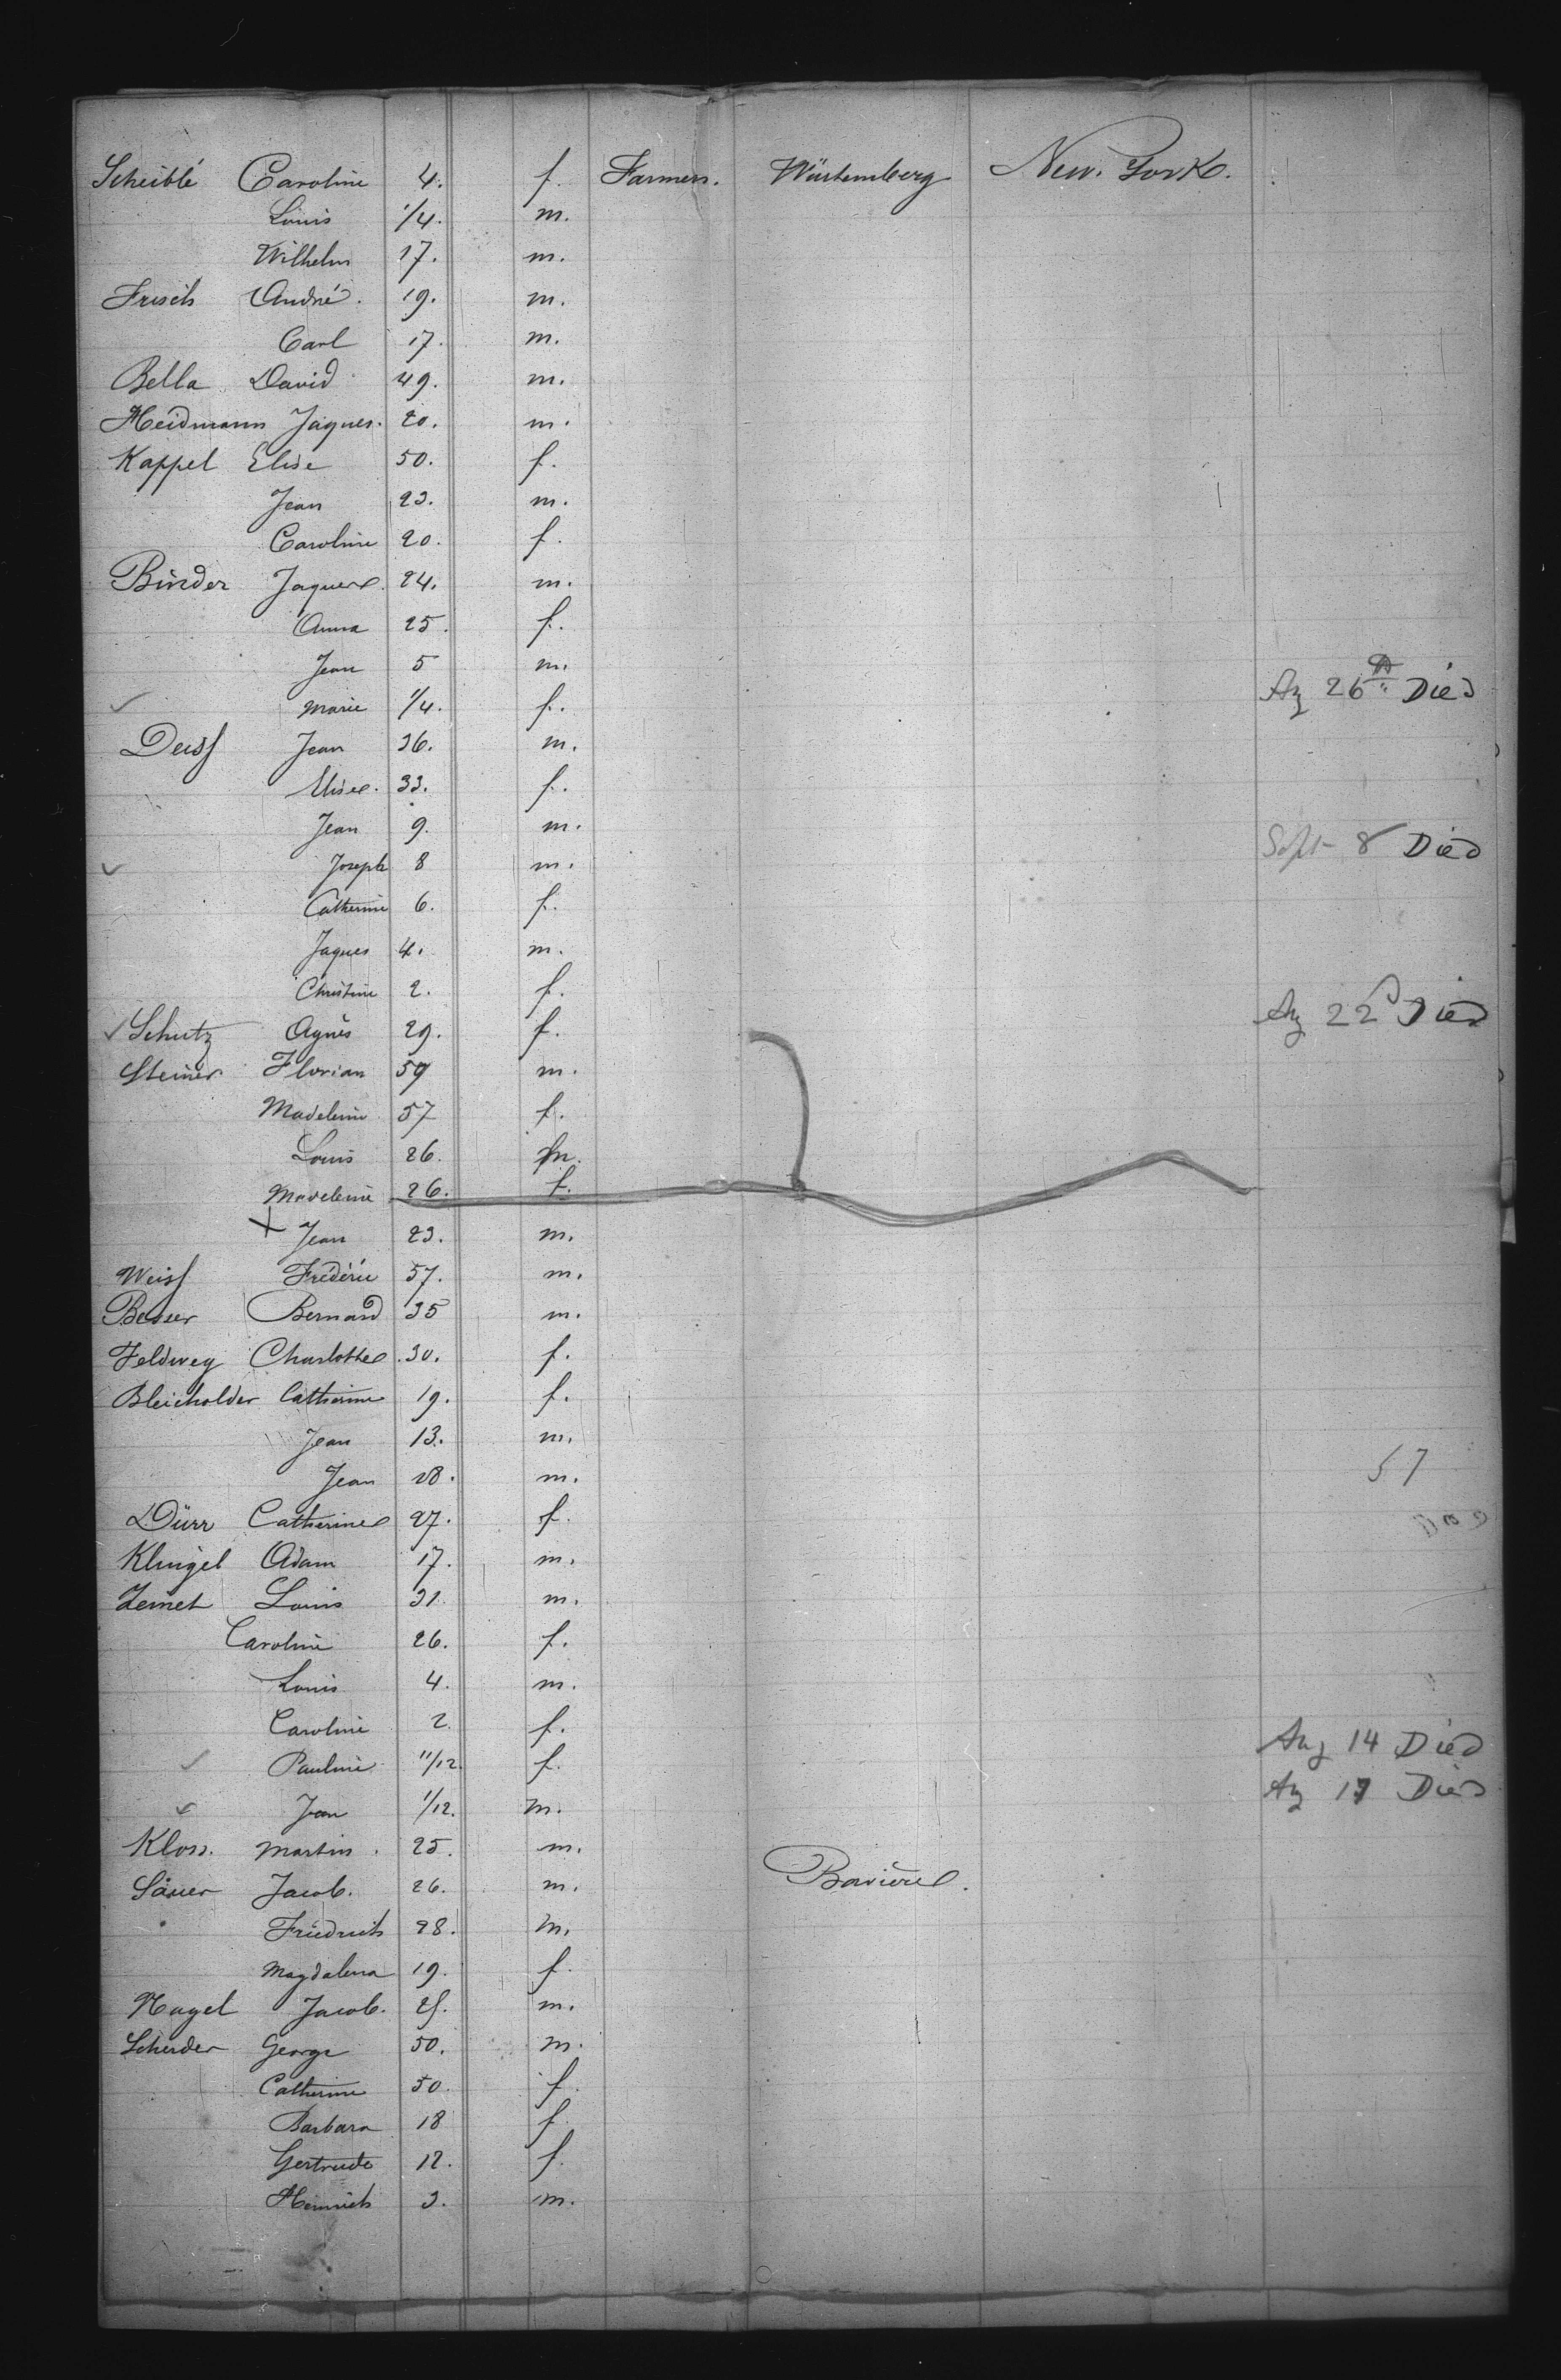 Scheiblé Caroline 4. f. Farmers. Würtemberg New. York.
Louis 1/4. m.
Wilhelm 17. m.
Frisch André. 19. m.
Carl 17. m.
Bella David 49. m.
Heidmann Jaques. 20. m.
Kappel Elise 50. f.
Jean 23. m.
Caroline 20. f.
Binder Jaques. 24. m.
Anna 25. f.
Jean 5 m.
✓ Marie 1/4. f. Ag 26th Died
Deiss Jean 36. m.
Elise. 33. f.
Jean 9. m.
✓ Joseph 8 m. Sept 8 Died
Catherine 6. f.
Jaques 4. m.
Christine 2. f.
✓ Schutz Agnès 29. f. Ag 22d Died
Steiner Florian 59 m.
Madeleine 57 f.
Louis 26. m.
Madeleine 26. f.
X Jean 23. m.
Weiss Fréderic 57. m.
Besser Bernard 35 m.
Feldweg Charlotte 30. f.
Bleicholder Catherine 19. f.
Jean 13. m.
Jean 28. m. 57
Dürr Catherine 27. f.
Klingel Adam 17. m.
Zeinet Louis 31. m.
Caroline 26. f.
Louis 4. m.
Caroline 2. f.
✓ Pauline 11/12. f. Aug 14 Died
✓ Jean 1/12. m. Ag 17 Died
Kloss. Martin. 25. m.
Sauer Jacob. 26. m. Bavière.
Friedrich 28. m.
Magdalena 19. f.
Nagel Jacob. m.
Scherder George 50. m.
Catherine 50. f.
Barbara 18 f.
Gertrude 12. f.
Heinrich 3. m.